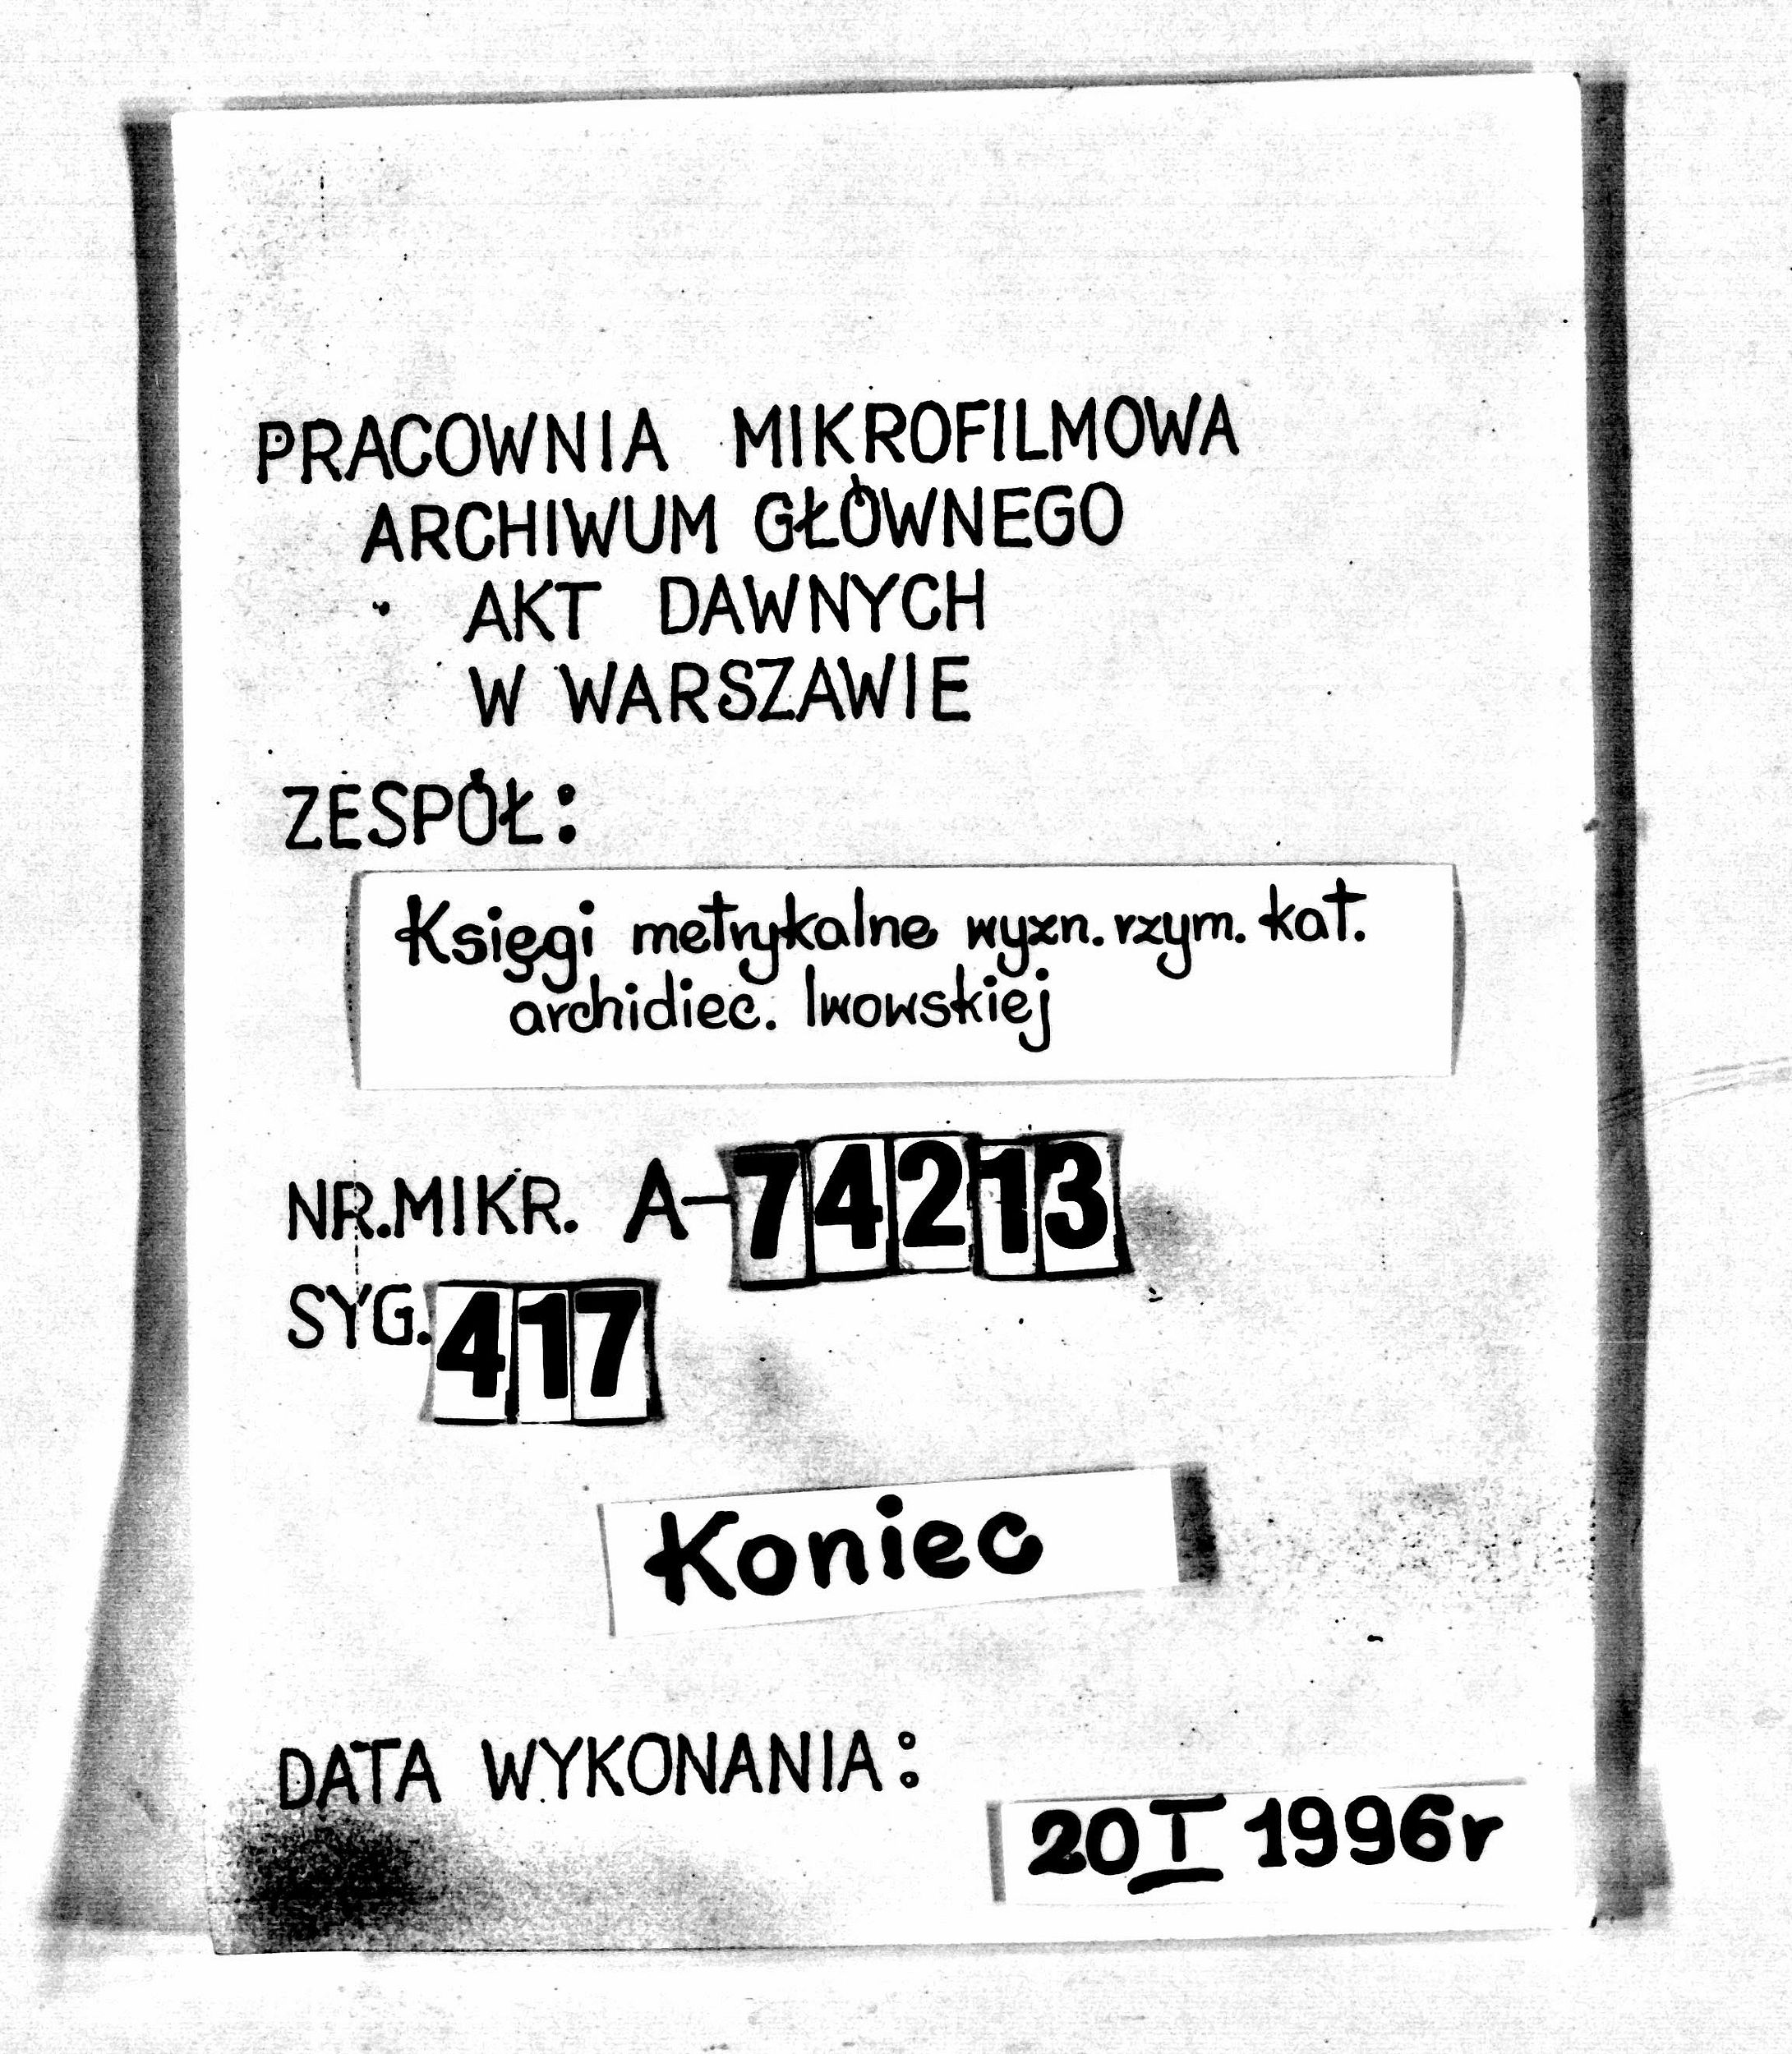 PRACOWNIA MIKROFILMOWA
ARCHIWUM GŁÓWNEGO
AKT DAWNYCH
W WARSZAWIE
ZESPÓŁ:
Księgi metrykalne wyzn. rzym. kat.
archidiec. lwowskiej
NR.MIKR. A-74213
SYG. 417
Koniec
DATA WYKONANIA:
20 I 1996r